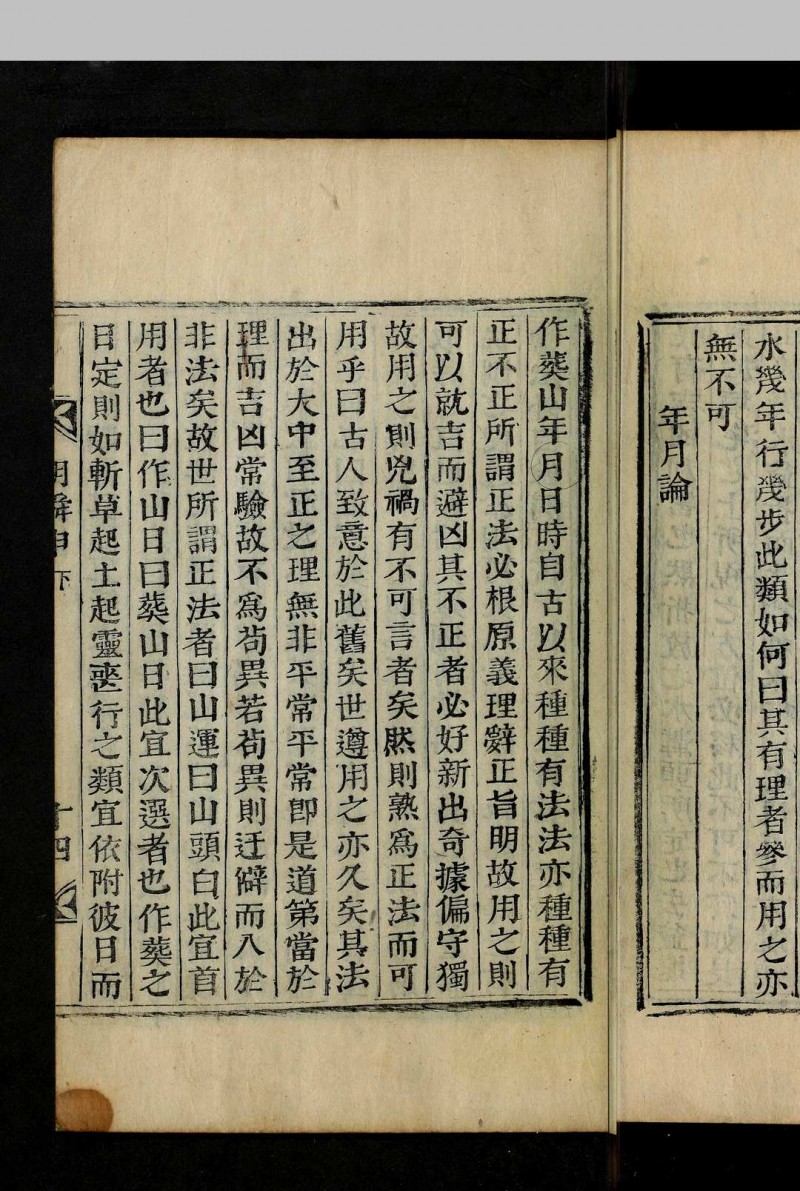 水幾年行幾步此類如何曰其有理者參而用之亦
無不可
年月論
作葬山年月日時自古以來種種有法法亦種種有
正不正所謂正法必根原義理辭正旨明故用之則
可以就吉而避凶其不正者必好新出奇據偏守獨
故用之則兇禍有不可言者矣然則熟為正法而可
用乎曰古人致意於此舊矣世遵用之亦久矣其法
出於大中至正之理無非平常平常即是道第當於
理而吉凶常驗故不為茍異若茍異則迂僻而入於
非法矣故世所謂正法者曰山運曰山頭白此宜首
用者也曰作山日曰葬山日此宜次選者也作葬之
日定則如斬草起土起靈喪行之類宜依附彼日而
下
十四